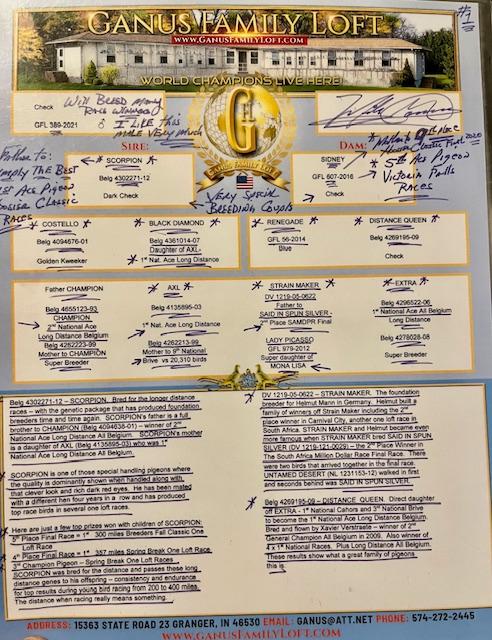 #1
GANUS FAMILY LOFT
WWW.GANUSFAMILYLOFT.COM
WORLD CHAMPIONS LIVE HERE!
Check
GFL 389-2021
Will BREED MANY
RACE WINNERS!
I LIKE THIS
MALE VERY MUCH
GH
GANUS FAMILY LOFT
SIRE:
DAM:
Father to:
Simply THE BEST
1st Ace Pigeon
Hoosier Classic
RACES
SCORPION
Belg 4302271-12
Dark Check
VERY SPECIAL
BREEDING COUPLE
SIDNEY
GFL 607-2016
Check
Mother to place
Hoosier Classic Final 2020
5th Ace Pigeon
Victoria Falls
RACES
COSTELLO
Belg 4094676-01
Golden Kweeker
BLACK DIAMOND
Belg 4361014-07
Daughter of AXL-
1st Nat. Ace Long Distance
RENEGADE
GFL 56-2014
Blue
DISTANCE QUEEN
Belg 4269195-09
Check
Father CHAMPION
Belg 4655123-93
CHAMPION
2nd National Ace
Long Distance Belgium
Belg 4282223-99
Mother to CHAMPION
Super Breeder
AXL
Belg 4135895-03
1st Nat. Ace Long Distance
Belg 4262213-99
Mother to 9th National
Brive vs 20,310 birds
STRAIN MAKER
DV 1219-05-0622
Father to
SAID IN SPUN SILVER -
2nd Place SAMDPR Final
LADY PICASSO
GFL 979-2012
Super daughter of
MONA LISA
EXTRA
Belg 4296522-06
1st National Ace All Belgium
Long Distance
Belg 4278028-08
Super Breeder
Belg 4302271-12 – SCORPION. Bred for the longer distance
races – with the genetic package that has produced foundation
breeders time and time again. SCORPION's father is a full
brother to CHAMPION (Belg 4094636-01) – winner of 2nd
National Ace Long Distance All Belgium. SCORPION's mother
is a daughter of AXL (Belg 4135895-03) who was 1st
National Ace Long Distance All Belgium.
SCORPION is one of those special handling pigeons where
the quality is dominantly shown when handled along with
that clever look and rich dark red eyes. He has been mated
with a different hen four years in a row and has produced
top race birds in several one loft races.
Here are just a few top prizes won with children of SCORPION:
5th Place Final Race = 1st 300 miles Breeders Fall Classic One
Loft Race
4th Place Final Race = 1st 357 miles Spring Break One Loft Race
3rd Champion Pigeon – Spring Break One Loft Races
SCORPION was bred for the distance and passes these long
distance genes to his offspring – consistency and endurance
for top results during young bird racing from 200 to 400 miles.
The distance when racing really means something.
DV 1219-05-0622 – STRAIN MAKER. The foundation
breeder for Helmut Mann in Germany. Helmut built a
family of winners off Strain Maker including the 2nd
place winner in Carnival City, another one loft race in
South Africa. STRAIN MAKER and Helmut became even
more famous when STRAIN MAKER bred SAID IN SPUN
SILVER (DV 1219-121-0029) – the 2nd Place Winner in
The South Africa Million Dollar Race Final Race. There
were two birds that arrived together in the final race.
UNTAMED DESERT (NL 1231153-12) walked in first
and seconds behind was SAID IN SPUN SILVER.
Belg 4269195-09 – DISTANCE QUEEN. Direct daughter
off EXTRA - 1st National Cahors and 3rd National Brive
to become the 1st National Ace Long Distance Belgium.
Bred and flown by Xavier Verstraete – winner of 2nd
General Champion All Belgium in 2009. Also winner of
4 x 1st National Races. Plus Long Distance All Belgium.
These results show what a great family of pigeons
this is.
ADDRESS: 15363 STATE ROAD 23 GRANGER, IN 46530 EMAIL: GANUS@ATT.NET PHONE: 574-272-2445
WWW.GANUSFAMILYLOFT.COM